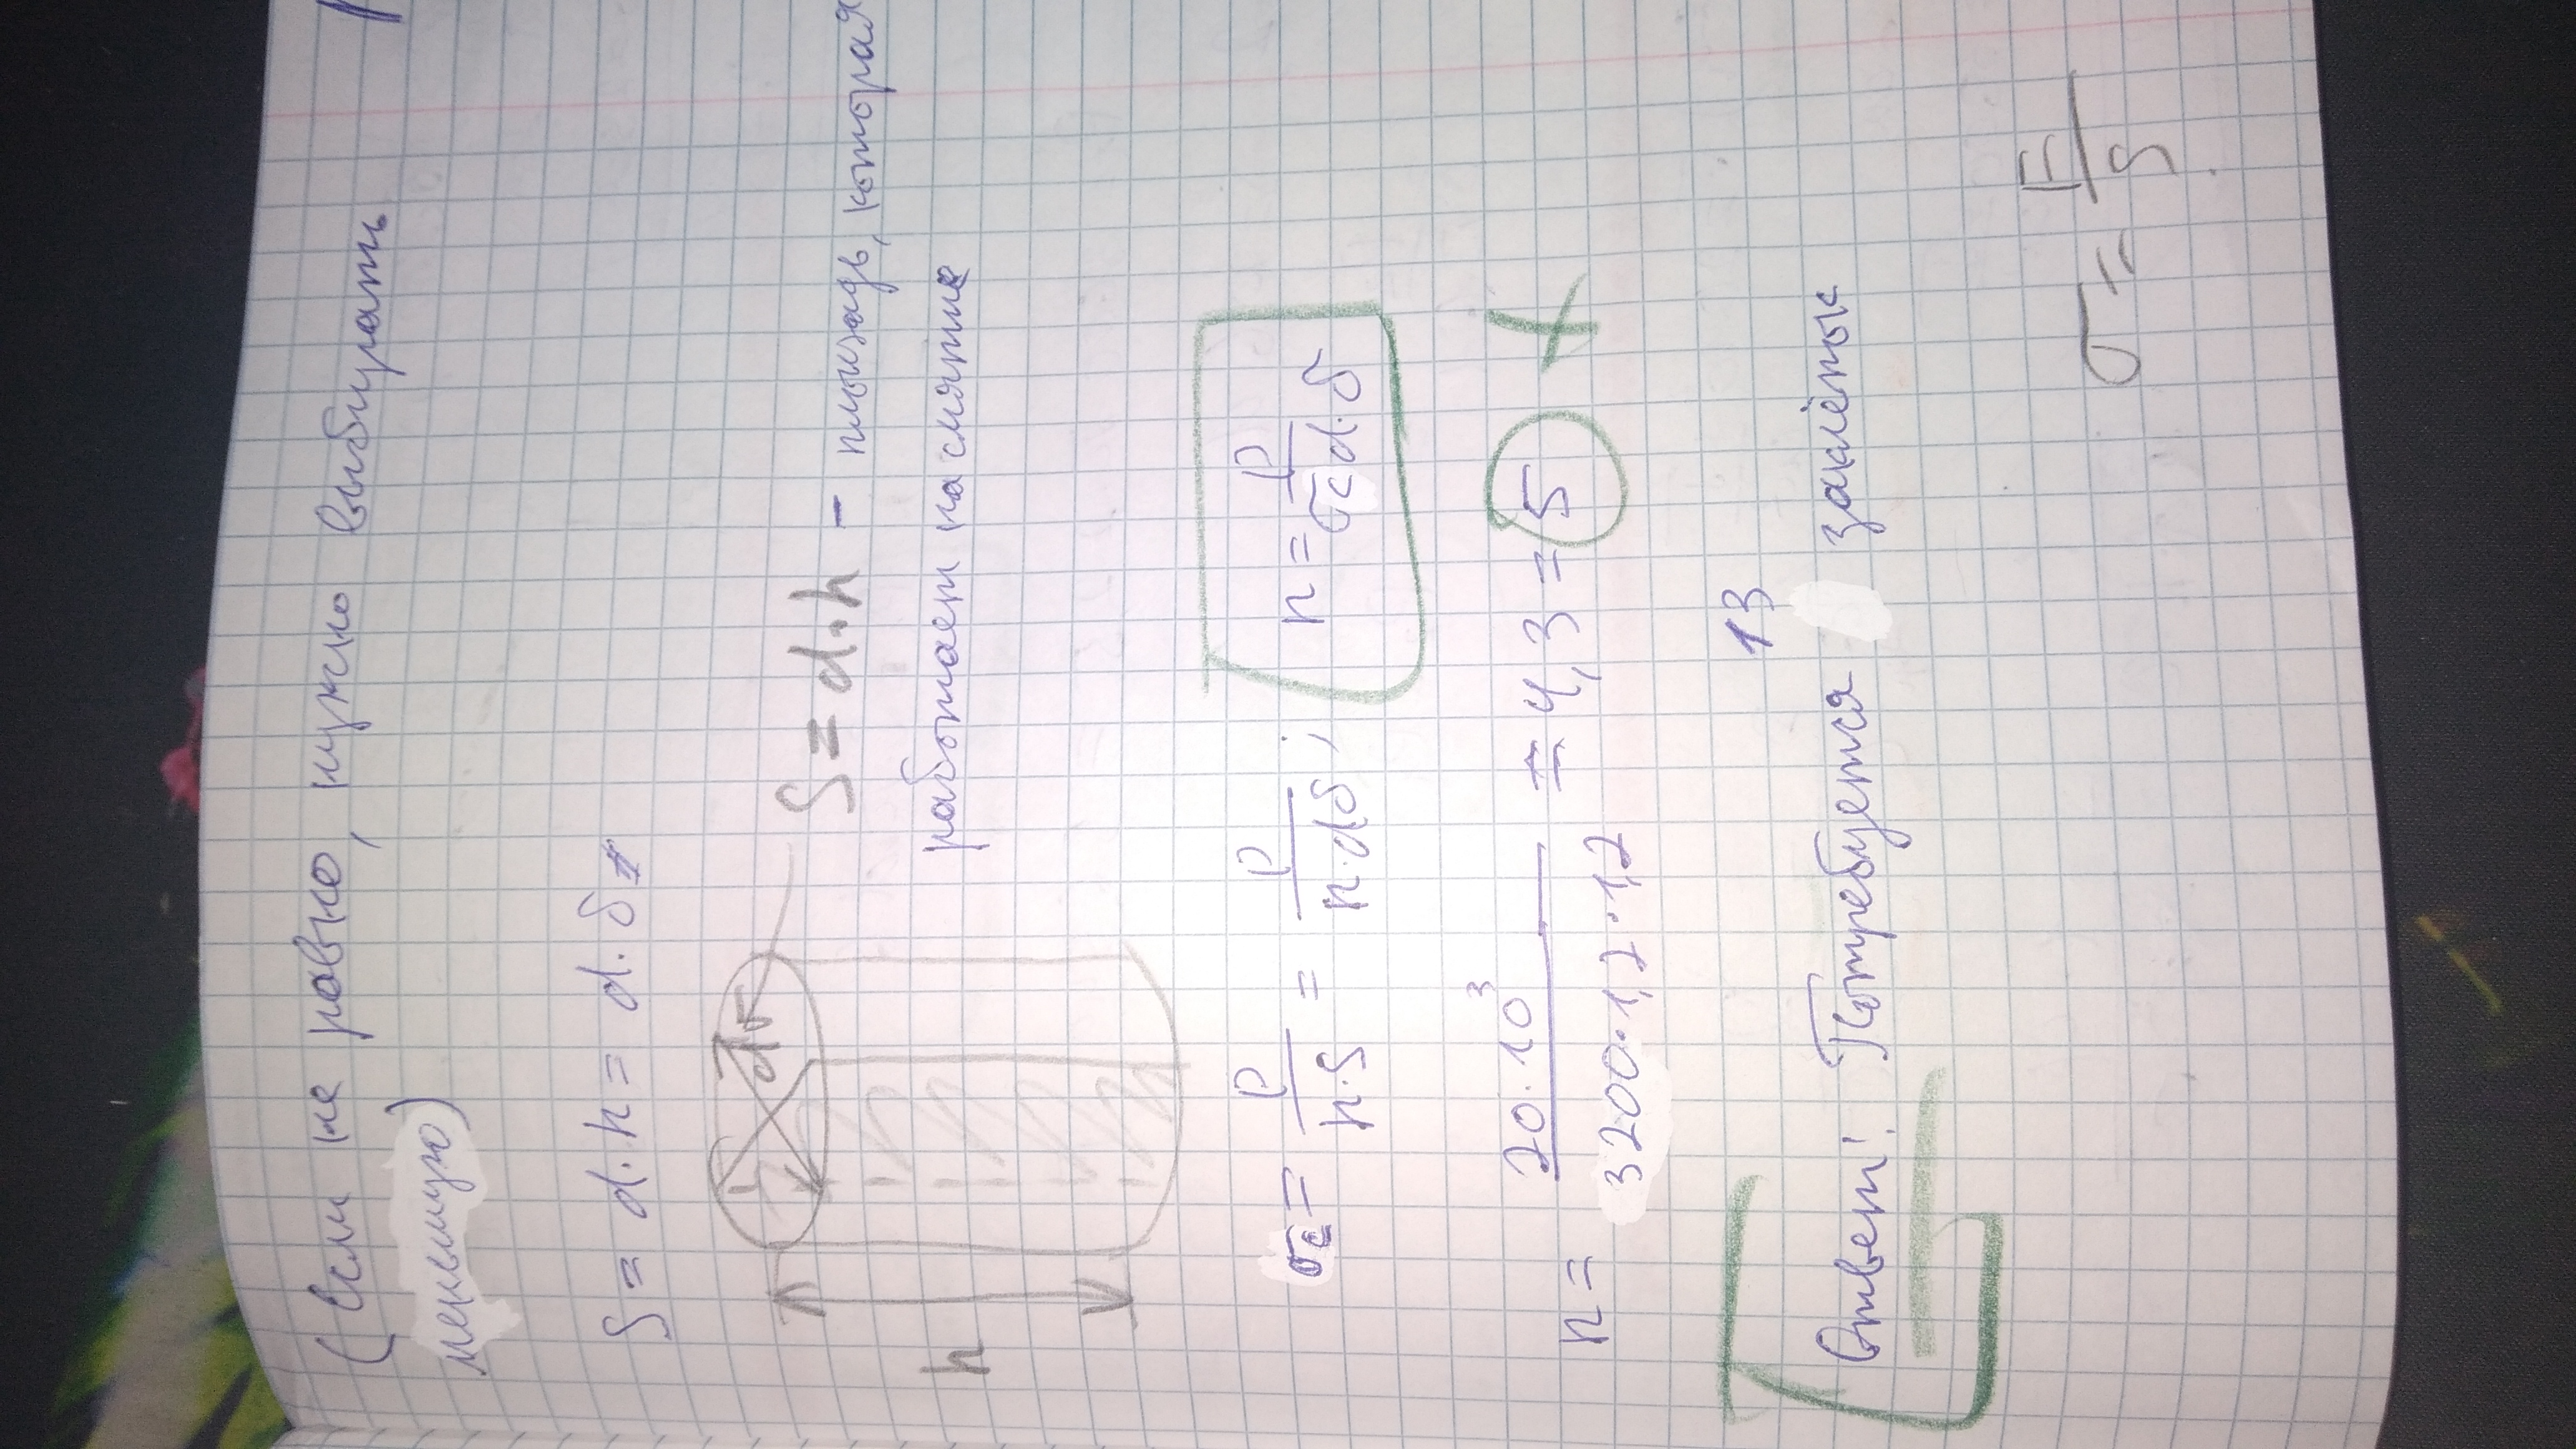 (Если не равно, нужно выбирать
меньшую)
S = d·h = d·δ
h
d
S = d·h – площадь, которая
работает на смятие
σc = P / n·S = P / n·dδ ; n = P / σc d·δ
n = 20·10³ / 3200·1,2·1,2 = 4,3 = 5 +
13
Ответ: Потребуется заклёпок
σ = F / S